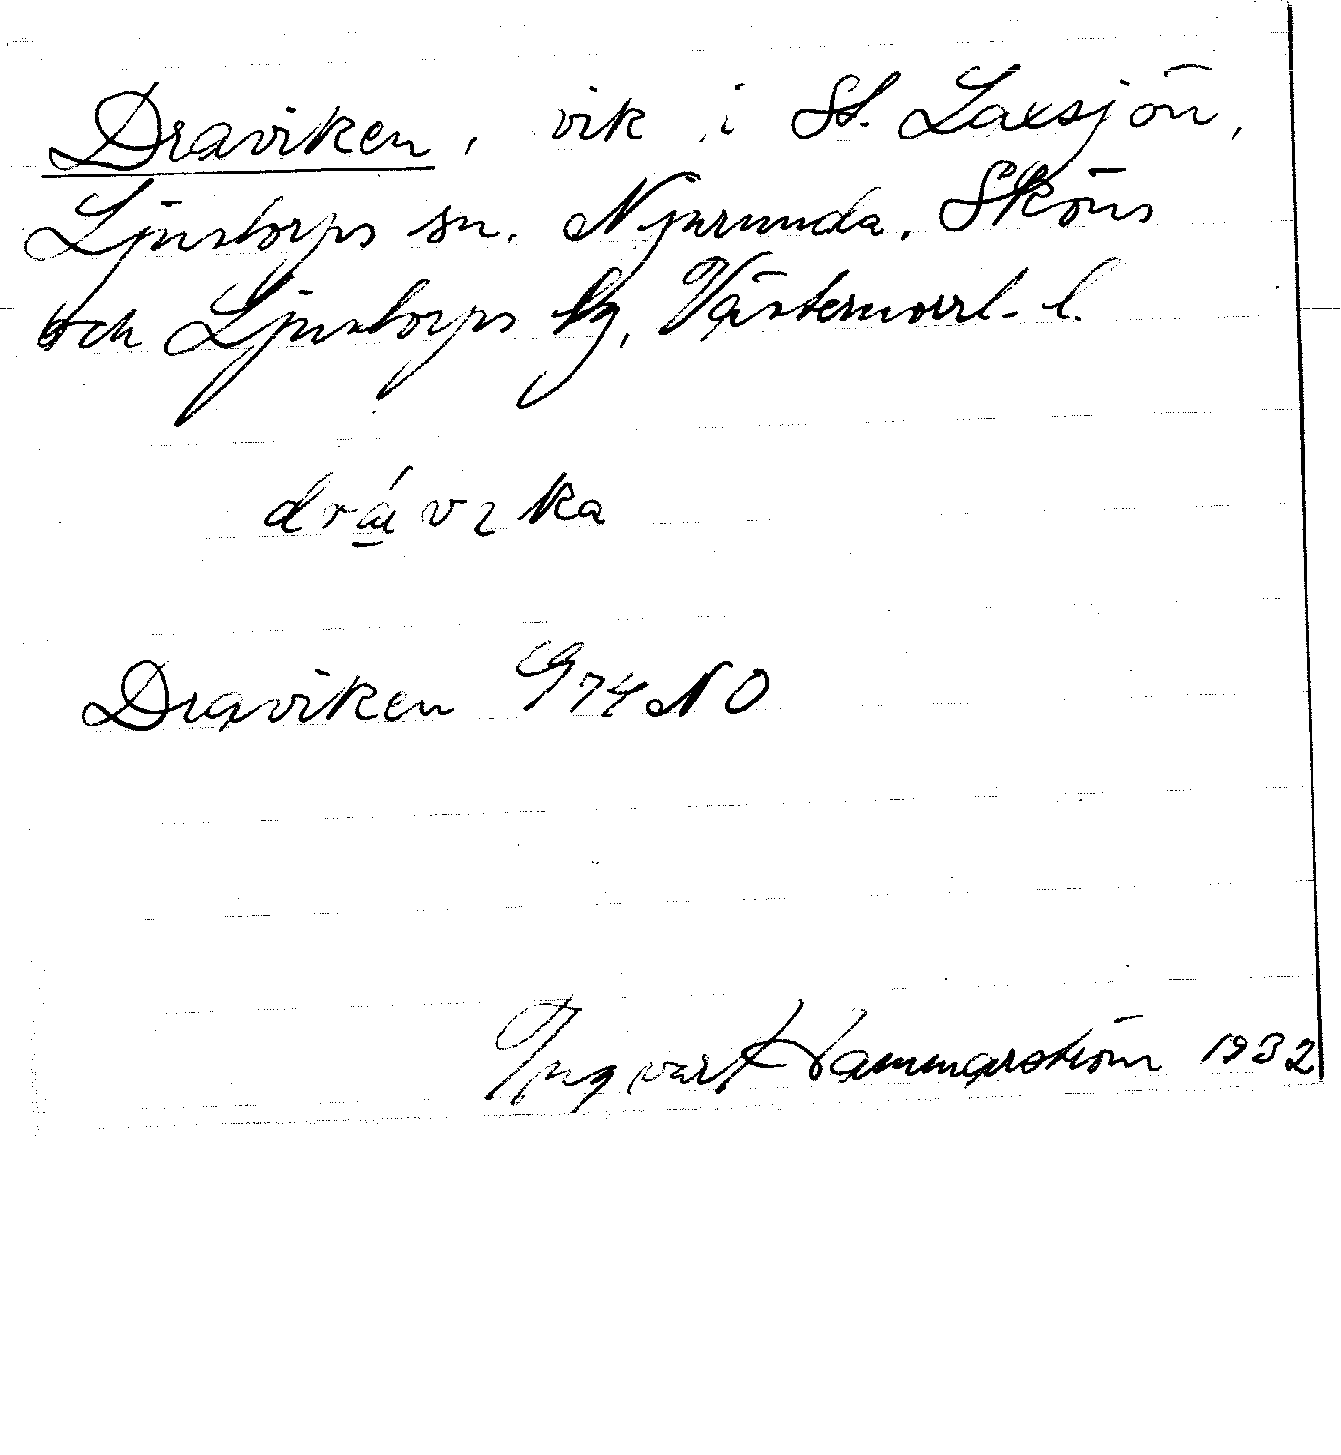 Draviken, vik i St. Laxsjön,
Ljustorps sn. Njurunda, Sköns
och Ljustorps tg, Västernorrl. l.
drávıka
Draviken G 74 NO
Ingvar Hammarström 1932